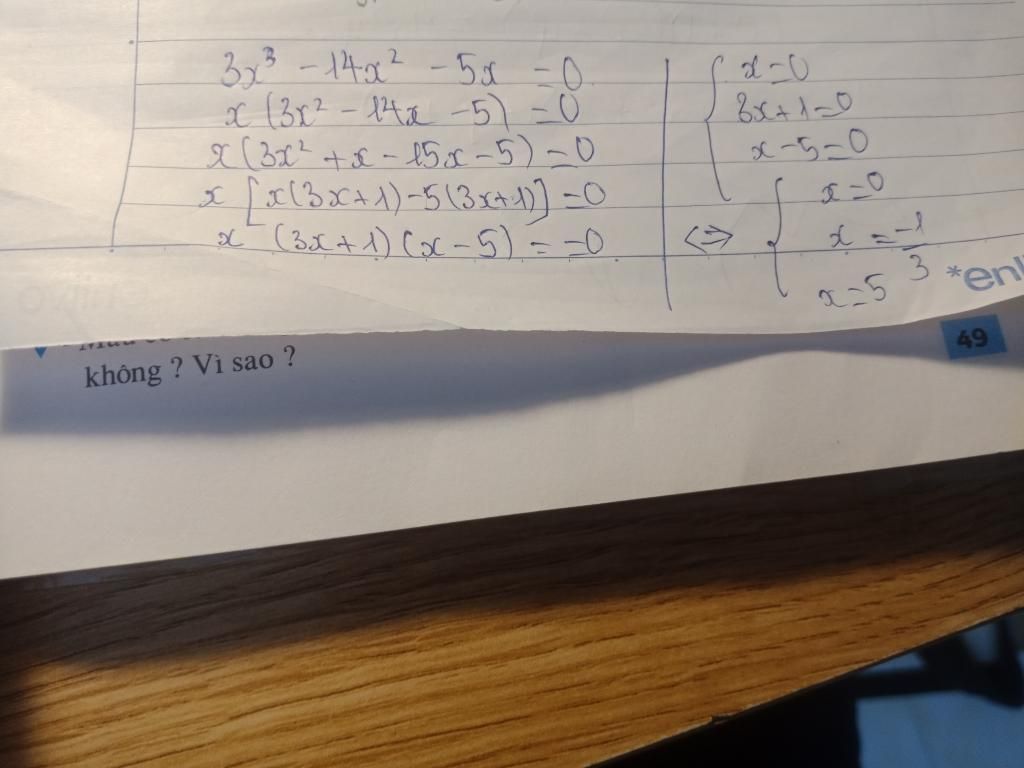 3x³ - 14x² - 5x = 0
x (3x² - 14x - 5) = 0
x (3x² + x - 15x - 5) = 0
x [x(3x+1) - 5(3x+1)] = 0
x (3x+1) (x - 5) = = 0
{ x = 0
3x + 1 = 0
x - 5 = 0
<=> { x = 0
x = -1/3
x = 5
*enl
49
không ? Vì sao ?